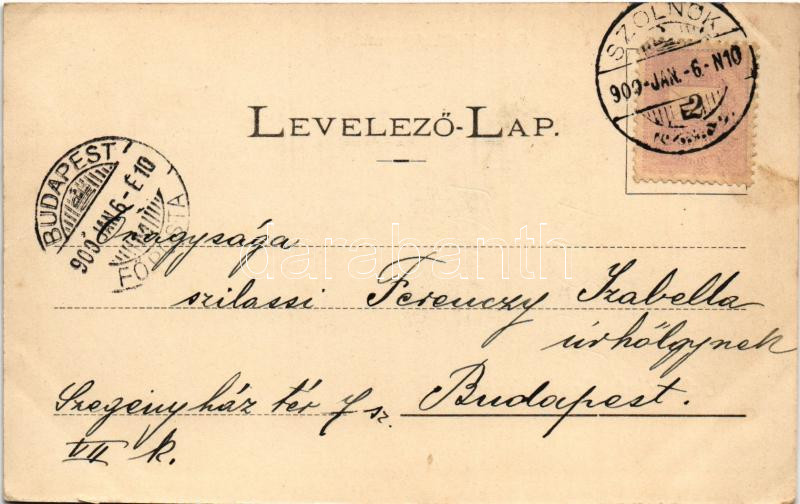 SZOLNOK
900-JAN.-6.-N10
2
LEVELEZŐ-LAP.
BUDAPEST
900-JAN.6-É10
FŐPOSTA
darabanth
Őnagysága
szilassi Ferenczy Izabella
úrhölgynek
Szegényház tér 7 sz. Budapest.
VII k.